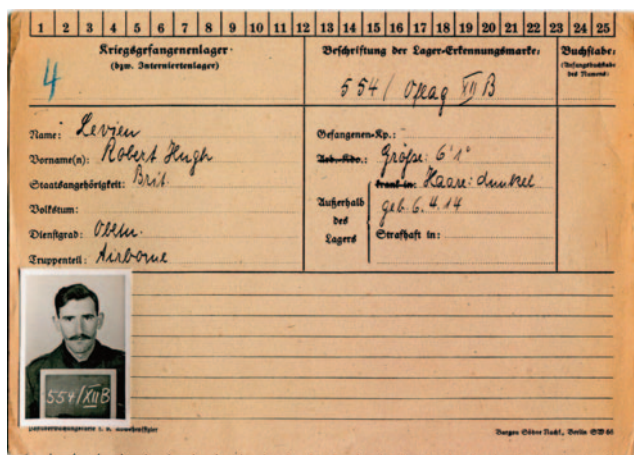 1 2 3 4 5 6 7 8 9 10 11 12 13 14 15 16 17 18 19 20 21 22 23 24 25
4
Kriegsgefangenenlager
(bzw. Interniertenlager)
Beschriftung der Lager-Erkennungsmarke:
554 / Oflag XII B
Buchstabe:
(Anfangsbuchstabe
des Namens)
Name: Levien
Vorname(n): Robert Hugh
Staatsangehörigkeit: Brit.
Volkstum:
Dienstgrad: Obltn.
Truppenteil: Airborne
Gefangenen-Kp.:
Arb.-Kdo.: Größe: 6'1"
krank in: Haare: dunkel
Außerhalb
des
Lagers
geb. 6.4.14
Strafhaft in:
554/XIIB
Burgas Söhne Nachf., Berlin SW 68